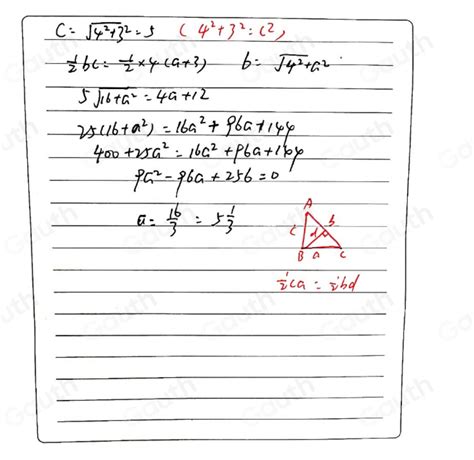 C = √4²+3² = 5 ( 4²+3² = C² )
½bc = ½×4(a+3) b = √4²+a²
5√16+a² = 4a+12
25(16+a²) = 16a²+96a+144
400+25a² = 16a²+96a+144
9a²-96a+256=0
a = 16/3 = 5⅓
A
c d b
B a C
½ca = ½bd